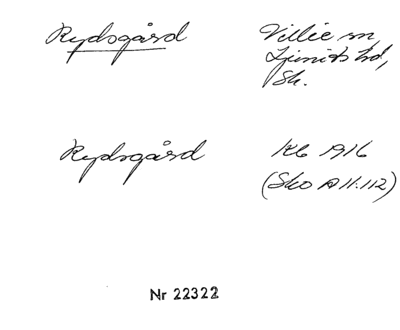 Rydsgård
Villie sn
Ljunits hd,
Sk.
Rydsgård
Kb 1916
(Sko A 11:112)
Nr 22322